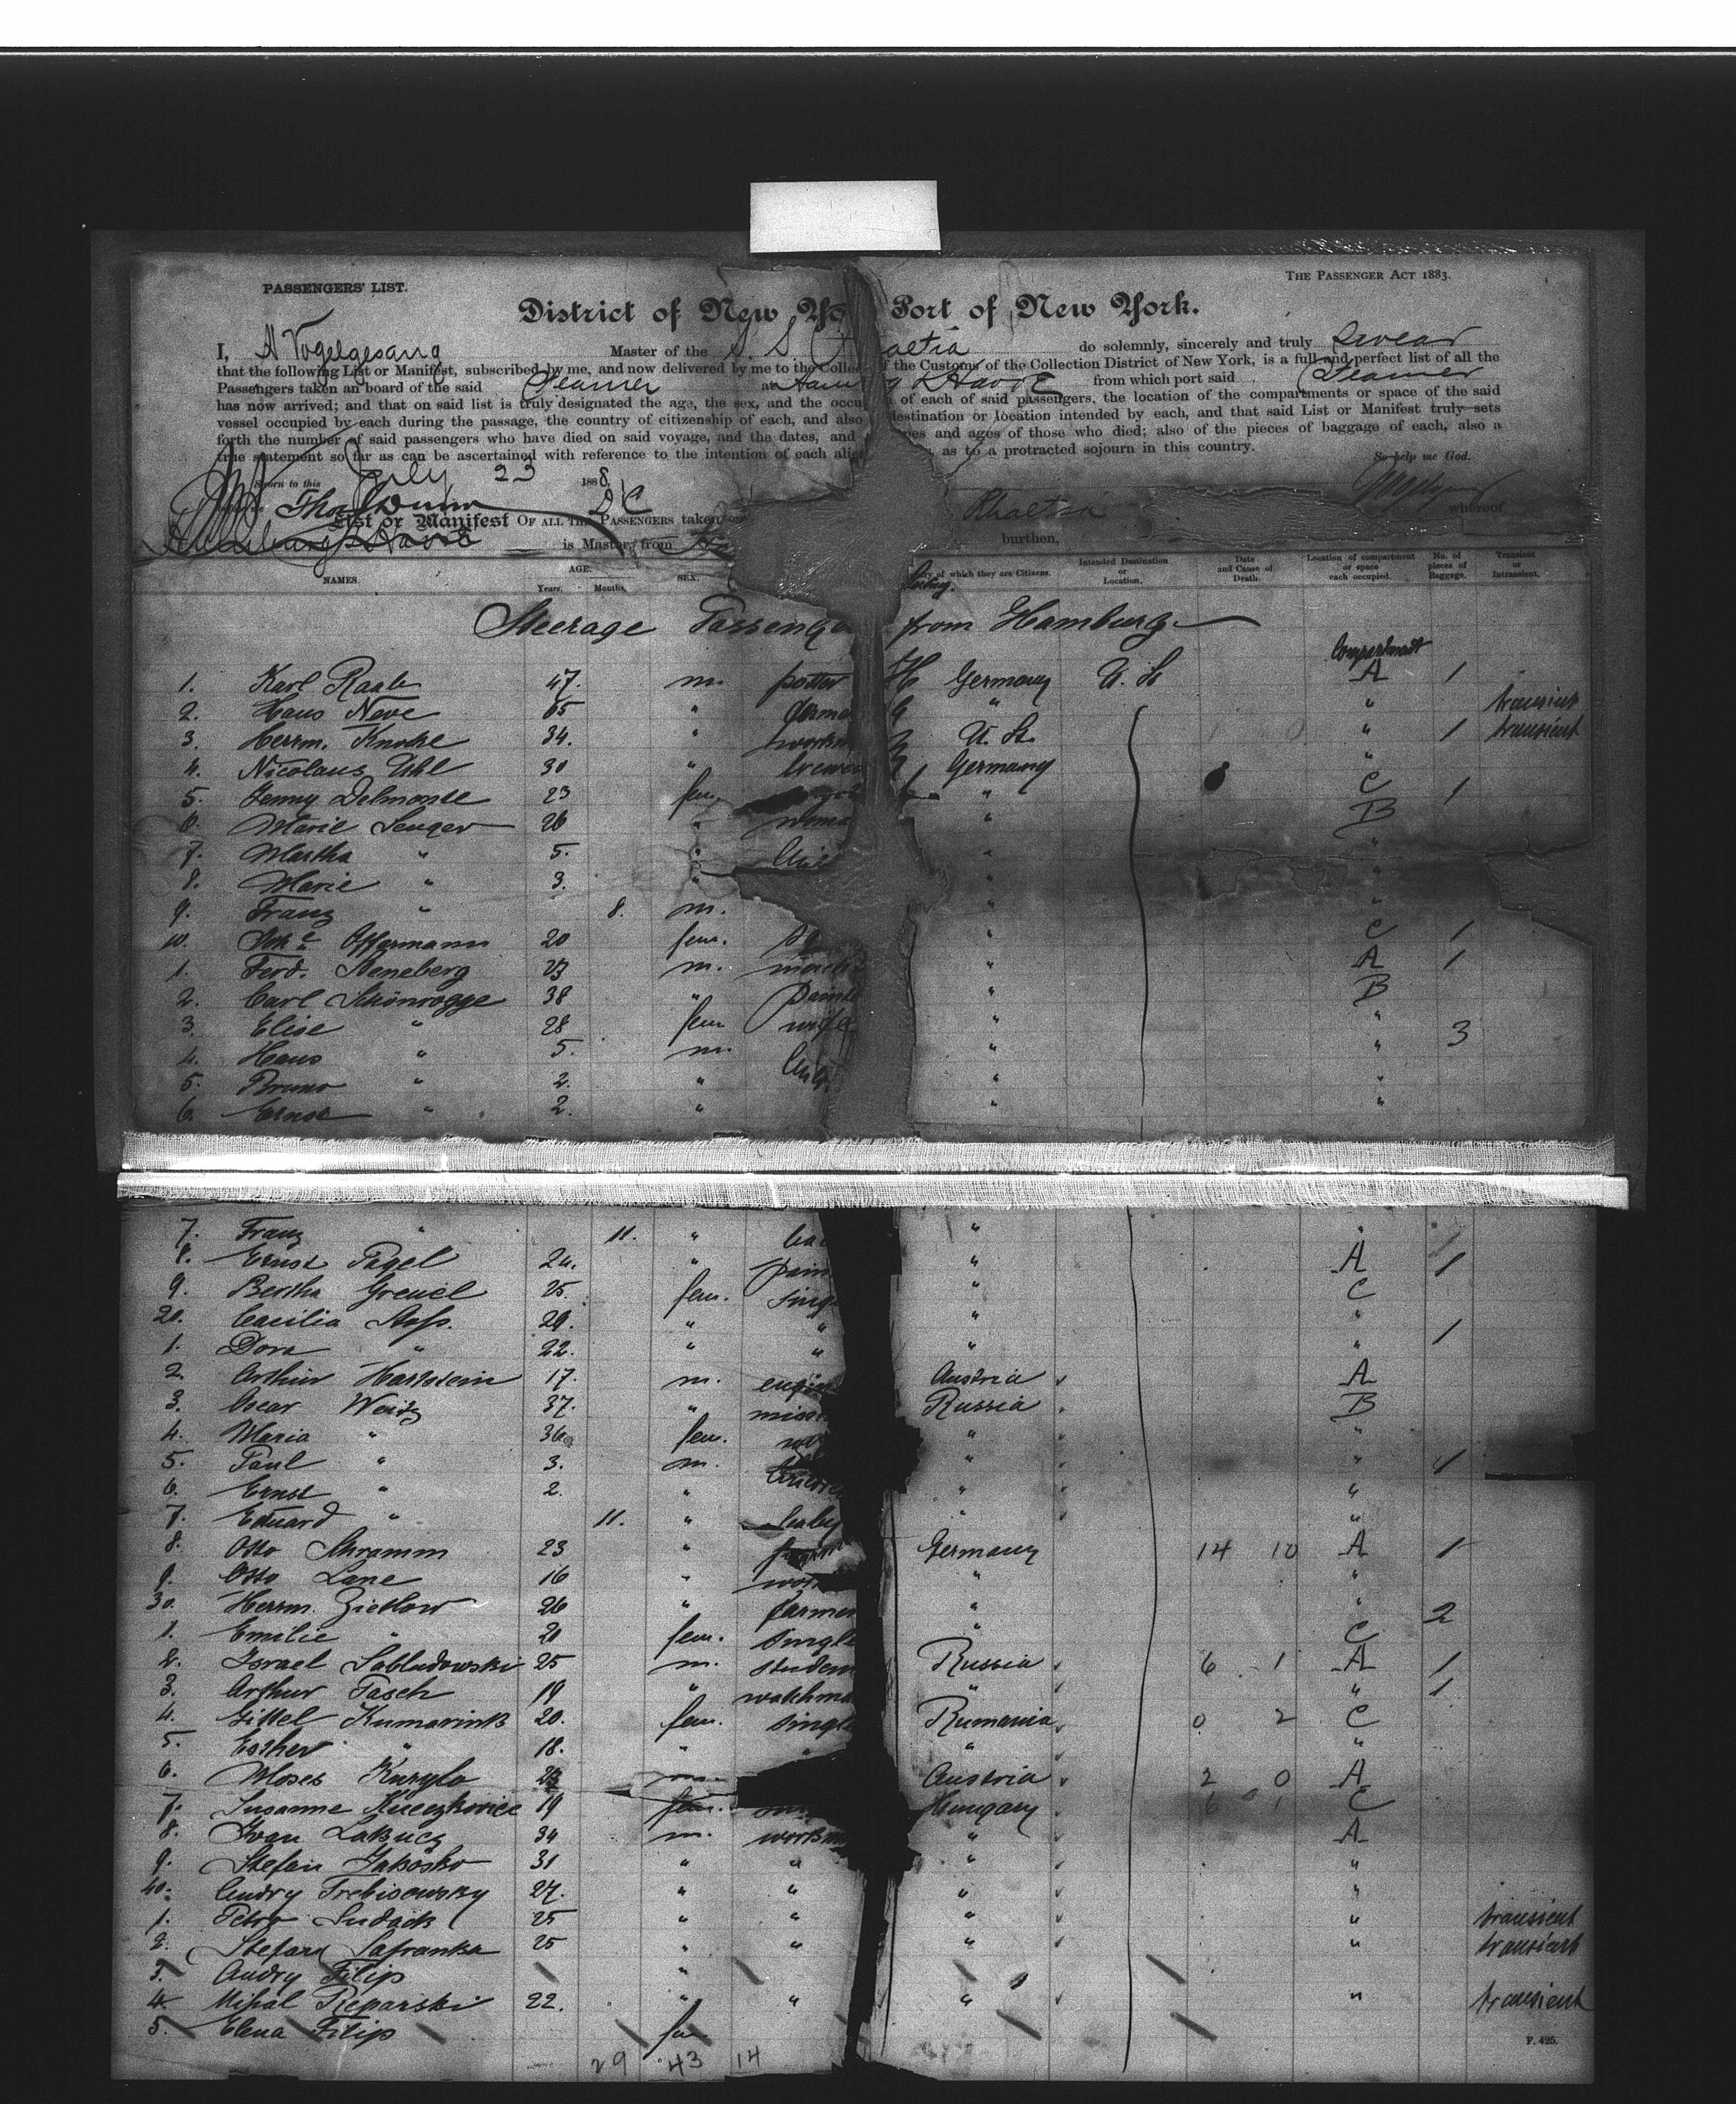 PASSENGERS' LIST. THE PASSENGER ACT 1883.
District of New Yo Port of New York.
I, A Vogelgesang Master of the S. S. Rhaetia do solemnly, sincerely and truly swear
that the following List or Manifest, subscribed by me, and now delivered by me to the Collec f the Customs of the Collection District of New York, is a full and perfect list of all the
Passengers taken on board of the said Steamer at Hamburg & Havre from which port said Steamer
has now arrived; and that on said list is truly designated the age, the sex, and the occu of each of said passengers, the location of the compartments or space of the said
vessel occupied by each during the passage, the country of citizenship of each, and also destination or location intended by each, and that said List or Manifest truly sets
forth the number of said passengers who have died on said voyage, and the dates, and es and ages of those who died; also of the pieces of baggage of each, also a
true statement so far as can be ascertained with reference to the intention of each alie , as to a protracted sojourn in this country. So help me God.
Sworn to this July 23 1888.
Thos Dunn D C
List or Manifest OF ALL THE PASSENGERS taken Rhaetia whereof
is Master, from burthen,
NAMES. AGE. Years. Months. SEX. ry of which they are Citizens. Intended Destination or Location. Date and Cause of Death. Location of compartment or space each occupied. No. of pieces of Baggage. Transient or Intransient.
Steerage Passenge from Hamburg
Compartment
1. Karl Raab 47. m. potter Germany U. St A 1
2. Hans Neve 65 " farme " " transient
3. Herrm. Knoke 34. " workm U. St. " 1 transient
4. Nicolaus Uhl 30 " brewer Germany "
5. Jenny Delmonte 23 fem. " C 1
6. Marie Senger 26 " woma " B
7. Martha " 5. " Chil " "
8. Marie " 3. " " "
9. Franz " 8. m. " "
10. Offermann 20 fem. " C 1
1. Ferd. Steneberg 23 m. merch " A 1
2. Carl Schönrogge 38 " painte " B
3. Elise " 28 fem wife " " 3
4. Hans " 5. m. Chil " "
5. Bruno " 2. " " "
6. Ernst " 2. " " "
7. Franz " 11. " ba " "
8. Ernst Pagel 24. " pain " A 1
9. Bertha Greuel 25. fem. sing " C
20. Caecilia Stoss. 29. " " " "
1. Dora " 22. " " " " 1
2. Arthur Hartstein 17. m. engin Austria A
3. Oscar Weitz 37. " miss Russia B
4. Maria " 36 fem. wo " "
5. Paul " 3. m. " " 4
6. Ernst " 2. " "
7. Eduard " 11. " baby " "
8. Otto Schramm 23 " Germany 14 10 A 1
9. Otto Lane 16 " work " "
30. Herrm. Zietlow 26 " farmer " " 2
1. Emilie " 20 fem. single " C
2. Israel Sabludowski 25 m. studen Russia 6 1 A 1
3. Arthur Pasch 19 " watchma " " 1
4. Gittel Kumarink 20. fem. singl Rumania 0 2 C
5. Esther " 18. " " " "
6. Moses Kurylo 23 m. Austria 2 0 A
7. Susanne Kuczkovics 19 fem. Hungary 6 1 C
8. Ivan Lakucz 34 m. workm " A
9. Stefan Jakosko 31 " " " "
40. Andry Trebisowsky 27. " " " "
1. Petro Sudack 25 " " " " transient
2. Stefan Safranka 25 " " " " transient
3. Andry Filip "
4. Mihal Reparski 22. " " " " transient
5. Elena Filip fe
29 43 14
F. 425.